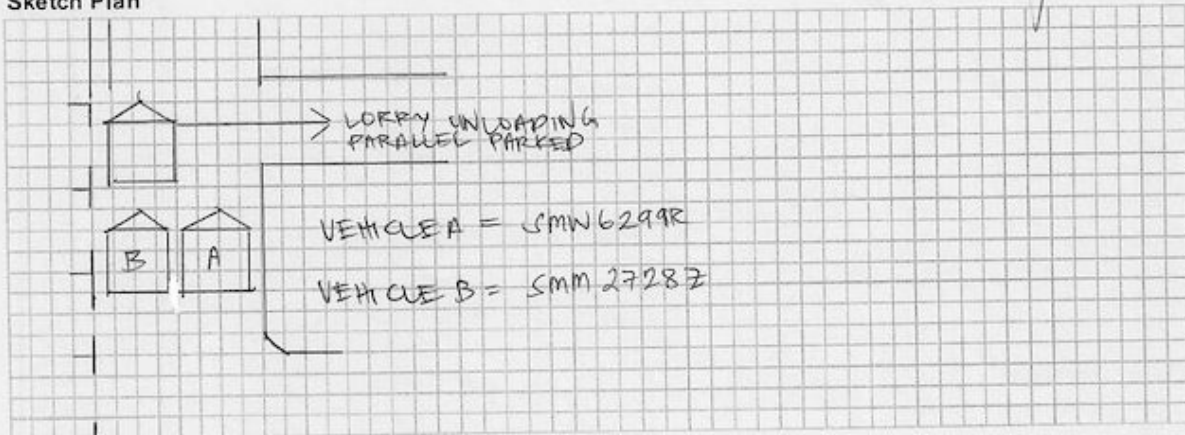 Sketch Plan
LORRY UNLOADING
PARALLEL PARKED
VEHICLE A = SMW6299R
B A
VEHICLE B = SMM 2728Z